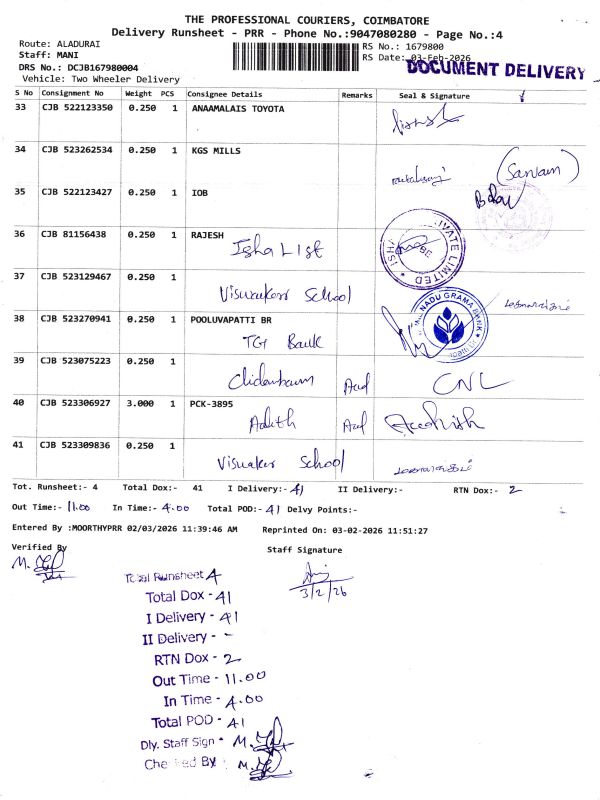 THE PROFESSIONAL COURIERS, COIMBATORE
Delivery Runsheet - PRR - Phone No.:9047080280 - Page No.:4
Route: ALADURAI
RS No.: 1679800
Staff: MANI
RS Date: 03-Feb-2026
DRS No.: DCJB167980004
DOCUMENT DELIVERY
Vehicle: Two Wheeler Delivery
S No Consignment No Weight PCS Consignee Details Remarks Seal & Signature
33 CJB 522123350 0.250 1 ANAAMALAIS TOYOTA
34 CJB 523262534 0.250 1 KGS MILLS
(Sarvam)
35 CJB 522123427 0.250 1 IOB
36 CJB 81156438 0.250 1 RAJESH
Isha List
37 CJB 523129467 0.250 1
School
38 CJB 523270941 0.250 1 POOLUVAPATTI BR
TGr Bank
NADU GRAMA BANK
39 CJB 523075223 0.250 1
40 CJB 523306927 3.000 1 PCK-3895
41 CJB 523309836 0.250 1
School
Tot. Runsheet:- 4 Total Dox:- 41 I Delivery:- 41 II Delivery:- RTN Dox:- 2
Out Time:- 11.00 In Time:- 4.00 Total POD:- 41 Delvy Points:-
Entered By :MOORTHYPRR 02/03/2026 11:39:46 AM Reprinted On: 03-02-2026 11:51:27
Verified By
Staff Signature
3/2/26
Total Runsheet 4
Total Dox - 41
I Delivery - 41
II Delivery - -
RTN Dox - 2
Out Time - 11.00
In Time - 4.00
Total POD - 41
Dly. Staff Sign -
Checked By :